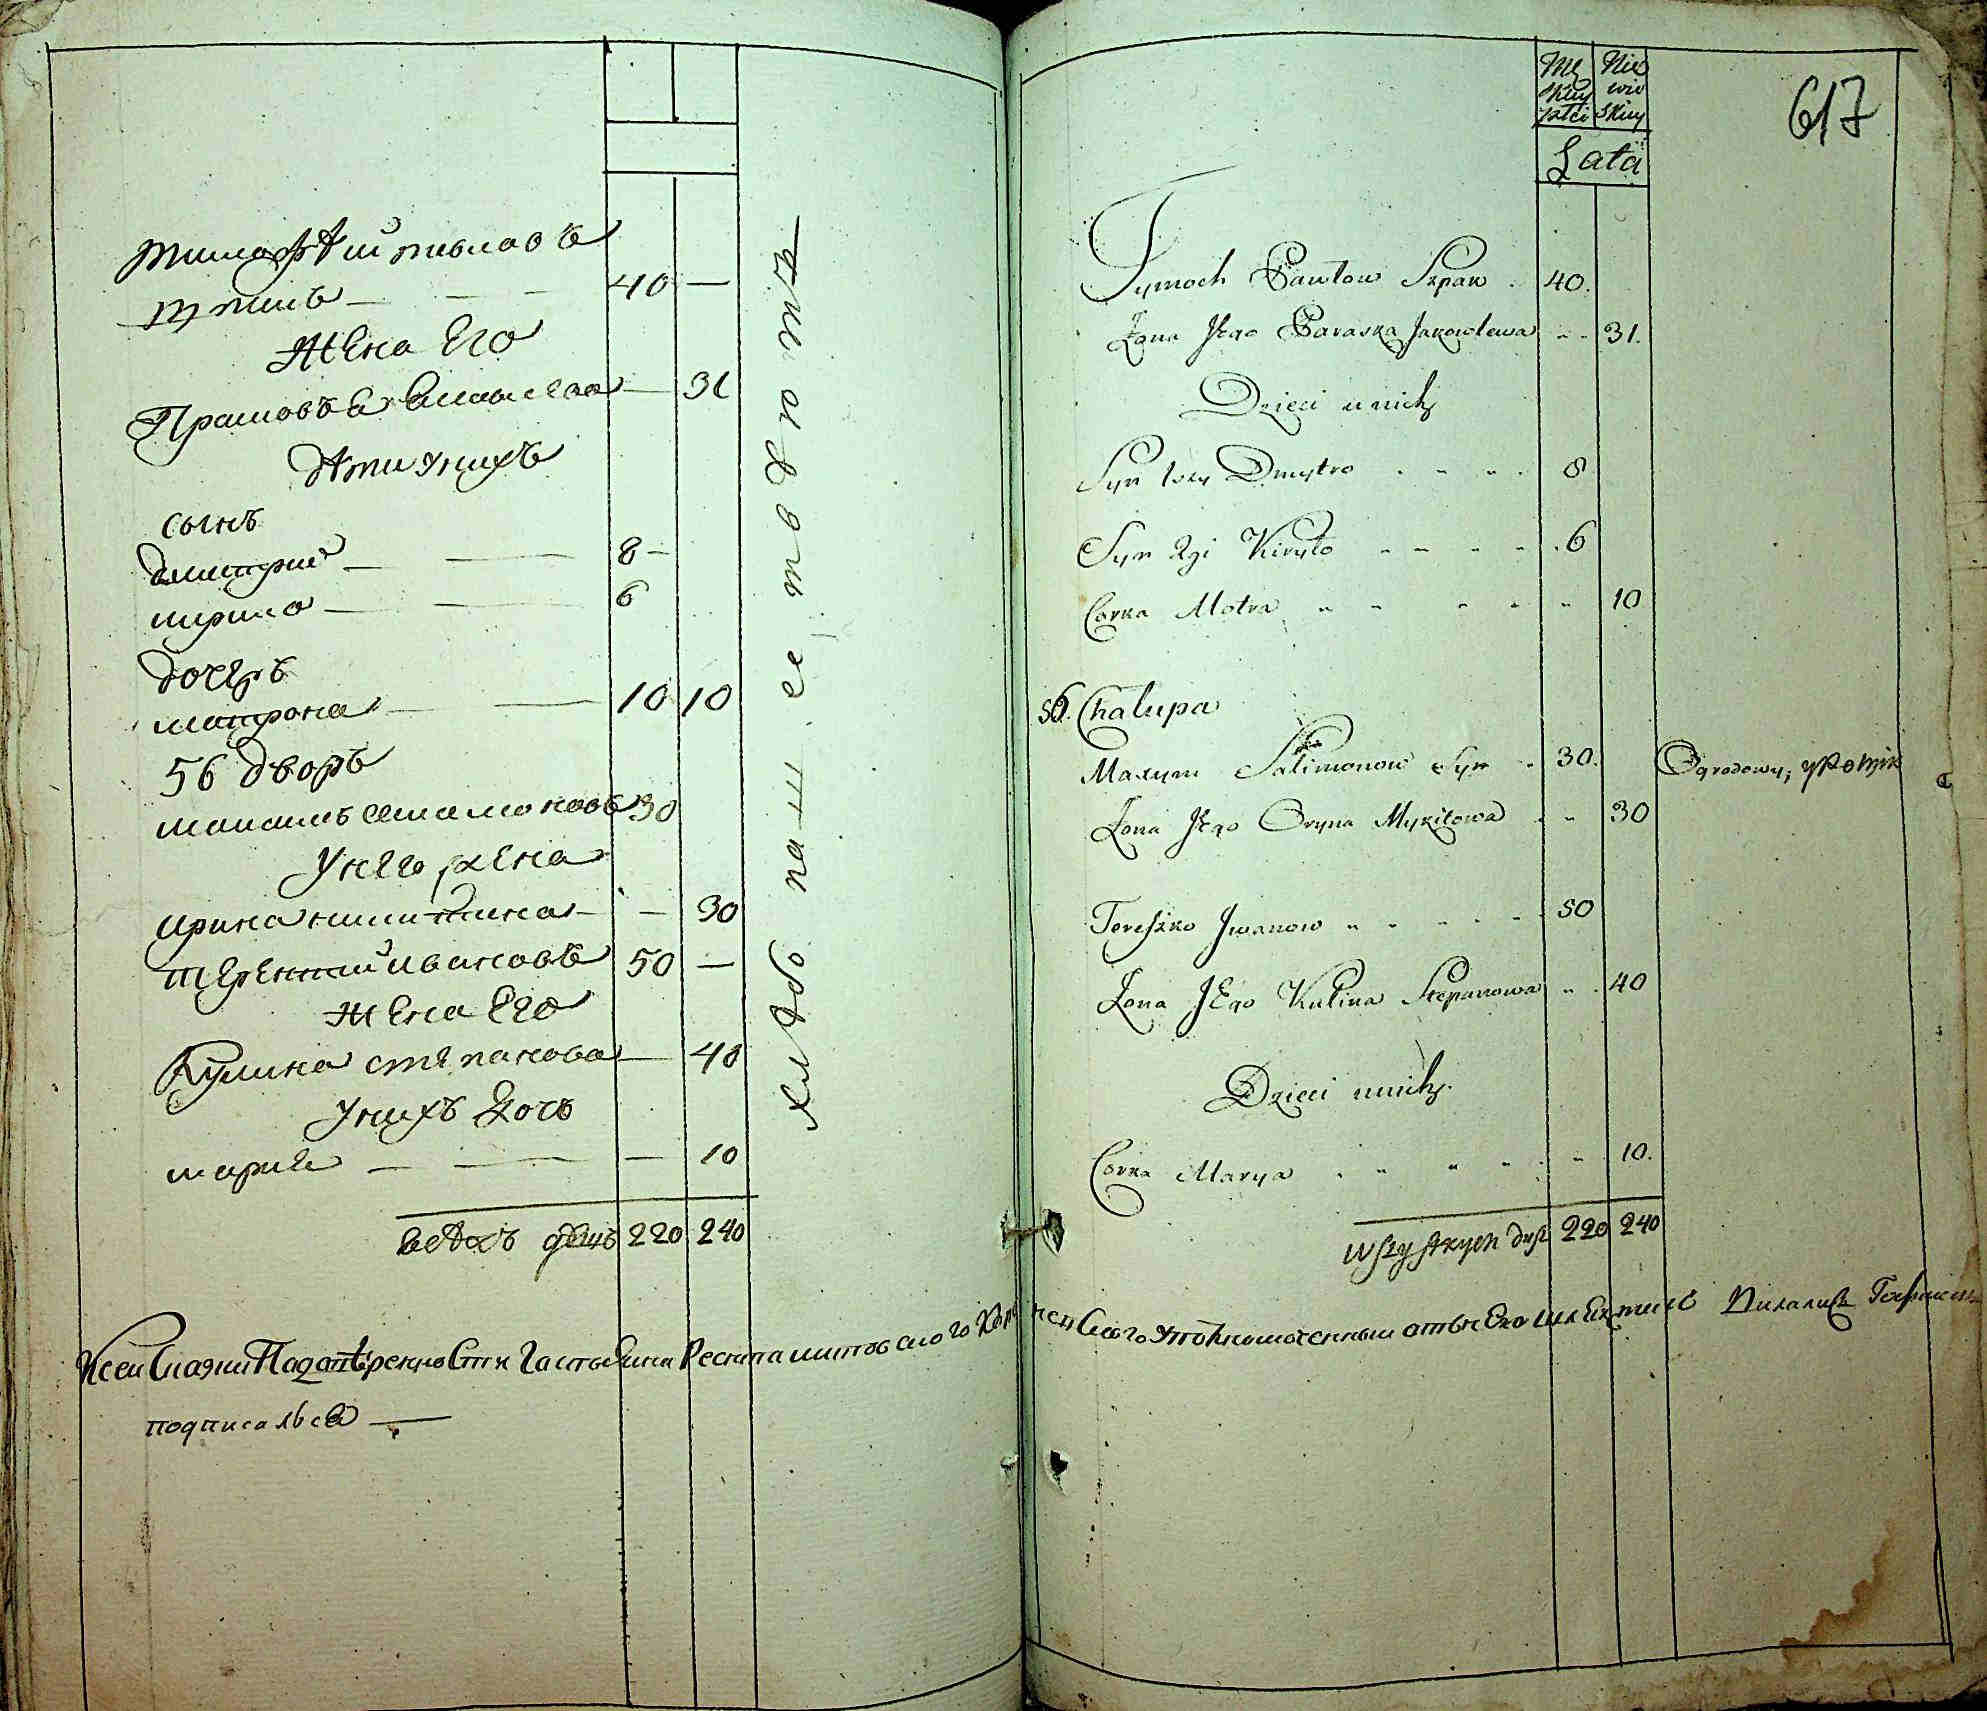 Тимофѣй павловъ
шпакъ — — — 40 —
жена Его
Прасковья — 31
дѣти унихъ
сынъ
дмитрий — — 8 —
кирило — — 6
дочерь
матрона — — 10 10
56 дворъ
максимъ 30
Унего жена
ирина никитина — — 30
терентий ивановъ 50 —
жена Его
Кулина степанова — 40
Унихъ дочь
мария — — — 10
всѣхъ душъ 220 240
хлѣбопашествуютъ
Męskiey płci
Niewieskiey
Lata
617
Tymoch Pawłow Szpak . 40.
Zona Jego Paraska Jakowlewa - - 31.
Dzieci unich
Syn 1szy Dmytro . - - . 8
Syn 2gi Kiryło - - - - . 6
Corka Motra - - - - - 10
56. Chałupa
Maxym Salimonow Syn . 30. Ogrodowy,
Zona Jego Oryna Mykitowa . - 30
Tereszko Jwanow - - - - . 50
Zona JEgo Kulina Stepanowa - . 40
Dzieci unich.
Corka Marya . - - - . - 10.
Wszystkych dusz 220 240
Ксей
подписалься —